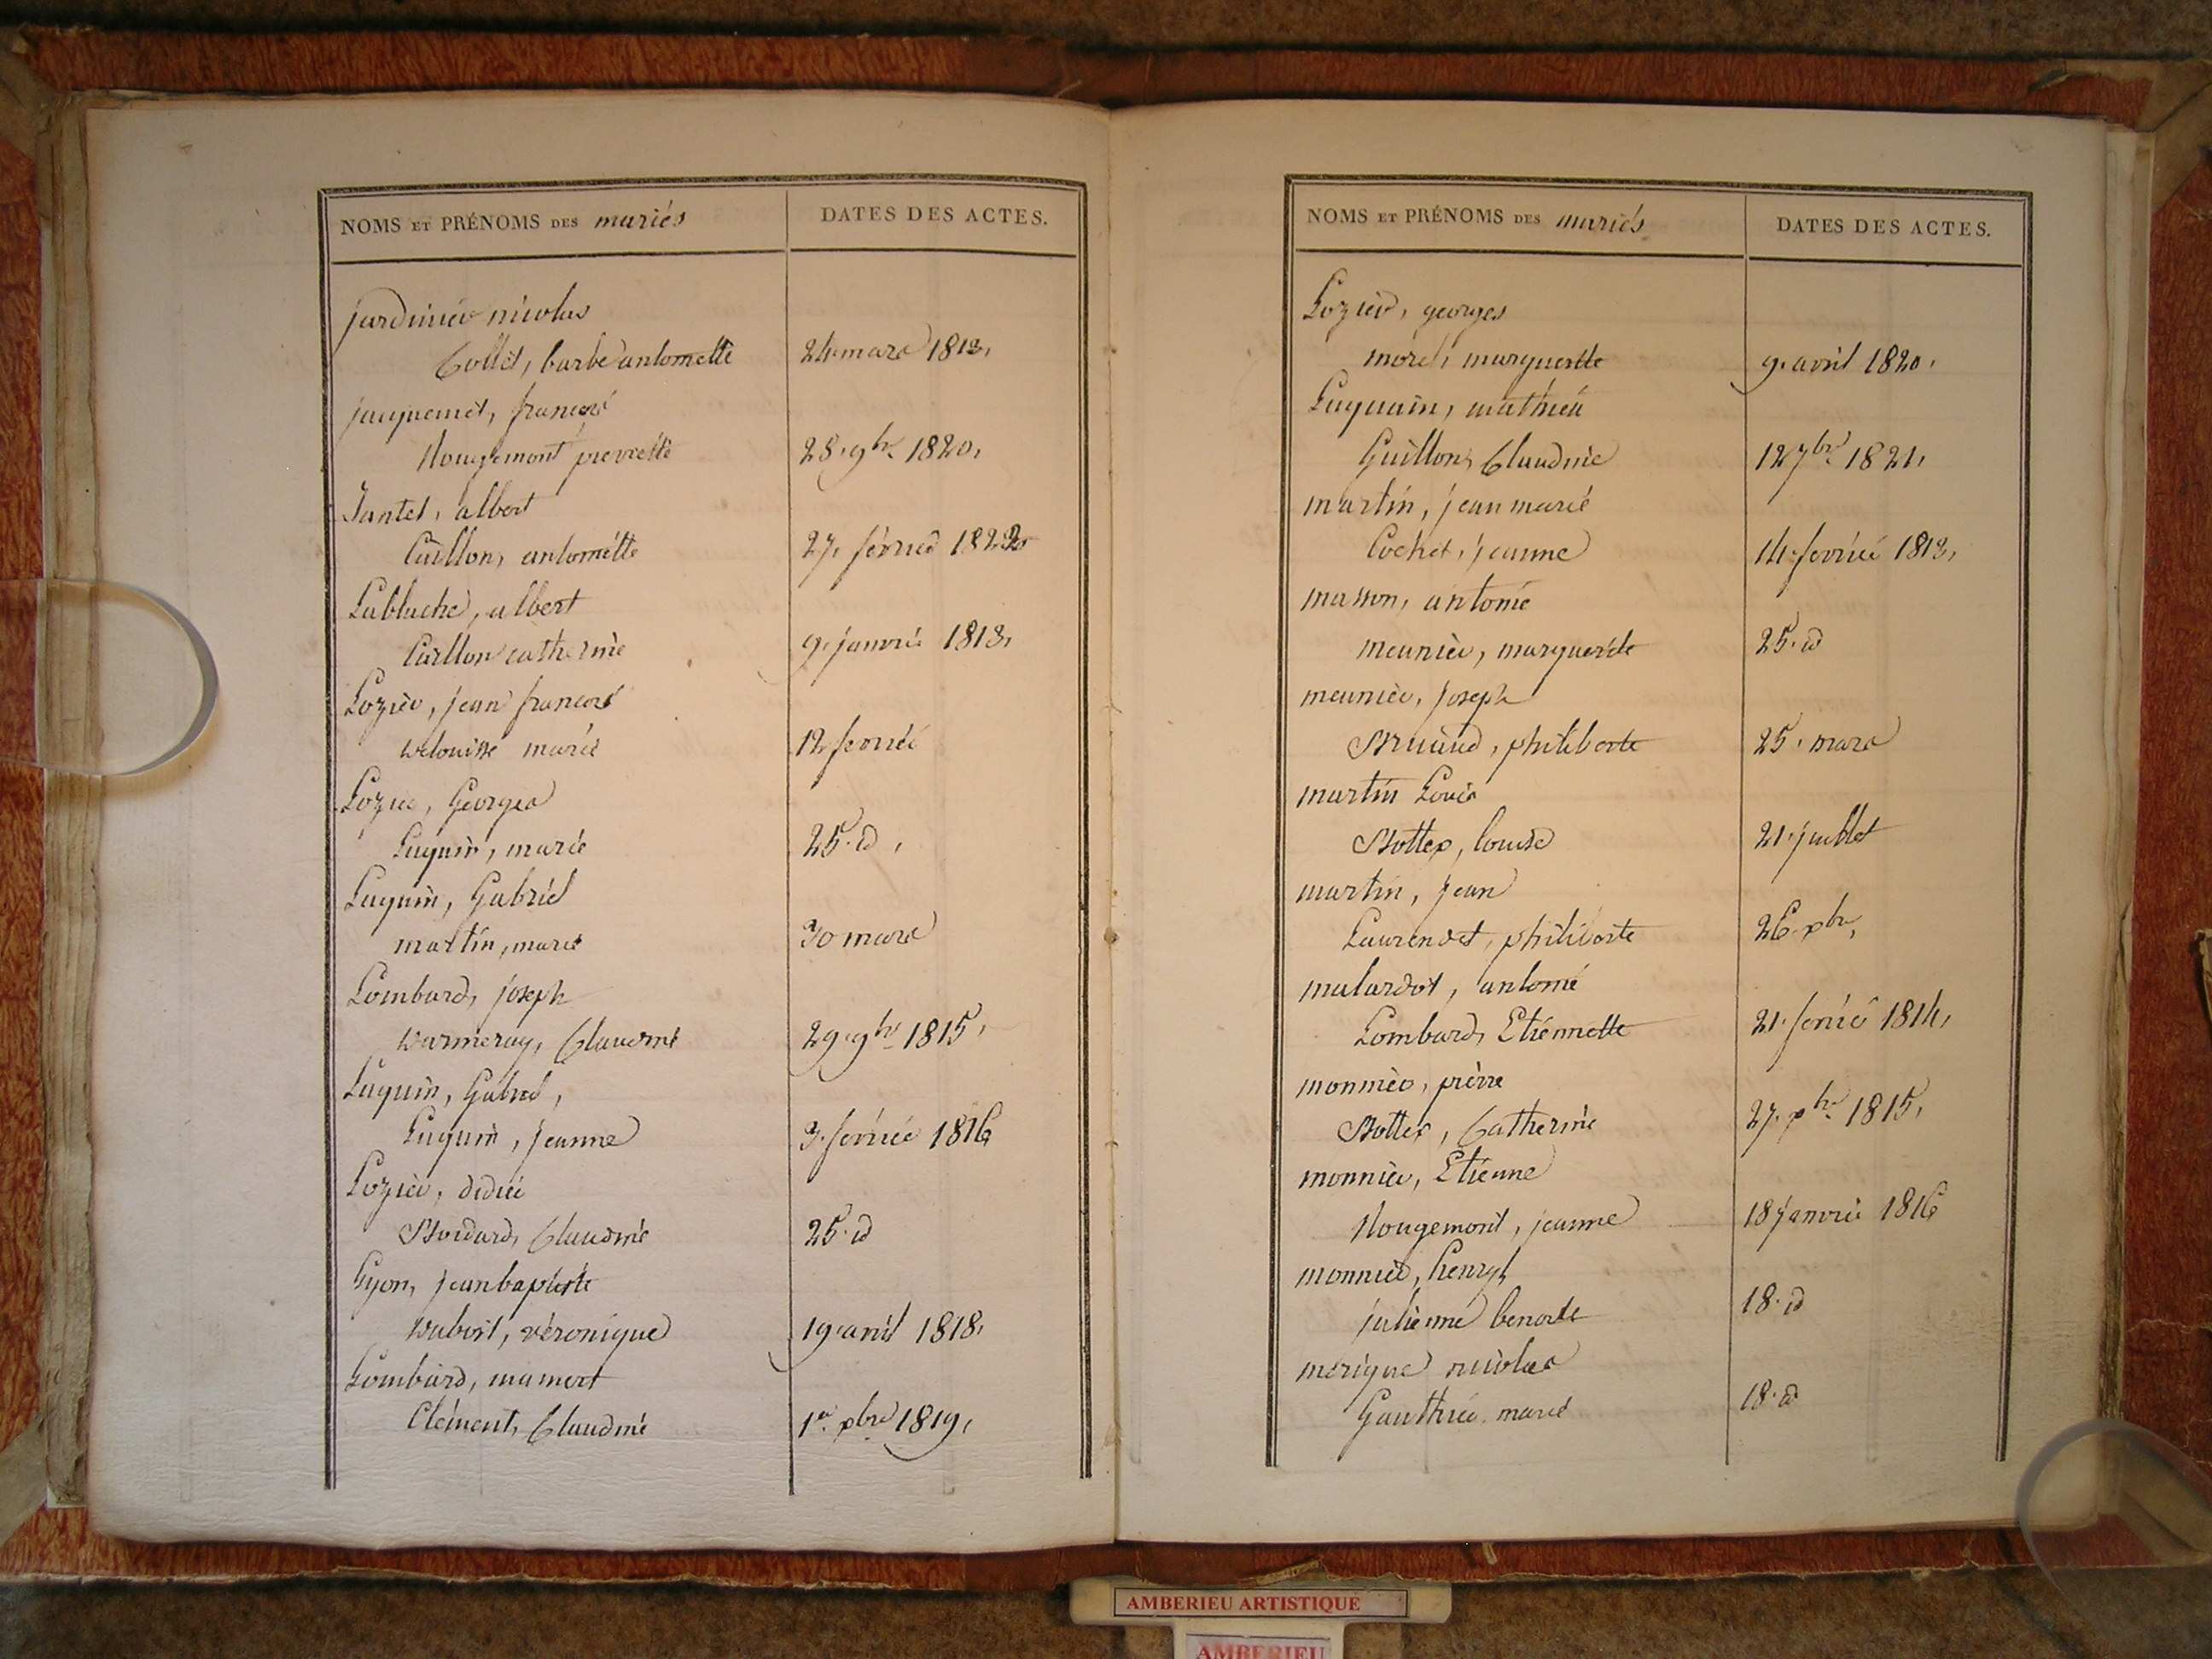 NOMS ET PRÉNOMS DES mariés
DATES DES ACTES.
jardinier nicolas
Collet, barbe antoinette 24 mars 1813,
jacquemet, françois
Rougemont pierrette 28. 9bre 1820,
Jantet, albert
Caillon, antoinette 27, février 1822
Lablache, albert
Caillon catherine 9, janvier 1813,
Lozier, jean françois
marie 12 février
Lozier, Georges
Luquin, marie 25. id,
Luquin, Gabriel
martin, marie 30 mars
Lombard, joseph
Claudine 29. 9bre 1815,
Luquin, Gabriel,
Luquin, jeanne 3. février 1816
Lozier, didier
Claudine 25. id
Lyon, jean baptiste
Dubost, véronique 19 avril 1818,
Lombard, mamert
Clément, Claudine 1er xbre 1819,
NOMS ET PRÉNOMS DES mariés
DATES DES ACTES.
Lozier, georges
morel, marguerite 9. avril 1820,
Luquain, mathieu
Guillon, Claudine 12 7bre 1821,
martin, jean marie
Cochet, jeanne 14 février 1813,
masson, antoine
meunier, marguerite 25. id
meunier, joseph
philiberte 25. mars
martin Louis
Bottex, louise 21. juillet
martin, jean
Laurendet, philiberte 26 xbre,
malardot, antoine
Lombard, Etiennette 21. février 1814,
monnier, pierre
Bottex, Catherine 27. xbre 1815,
monnier, Etienne
Rougemont, jeanne 18 janvier 1816
monnier, henry
julienne benoite 18. id
nicolas
Gauthier marie 18. id
AMBERIEU ARTISTIQUE
AMBERIEU